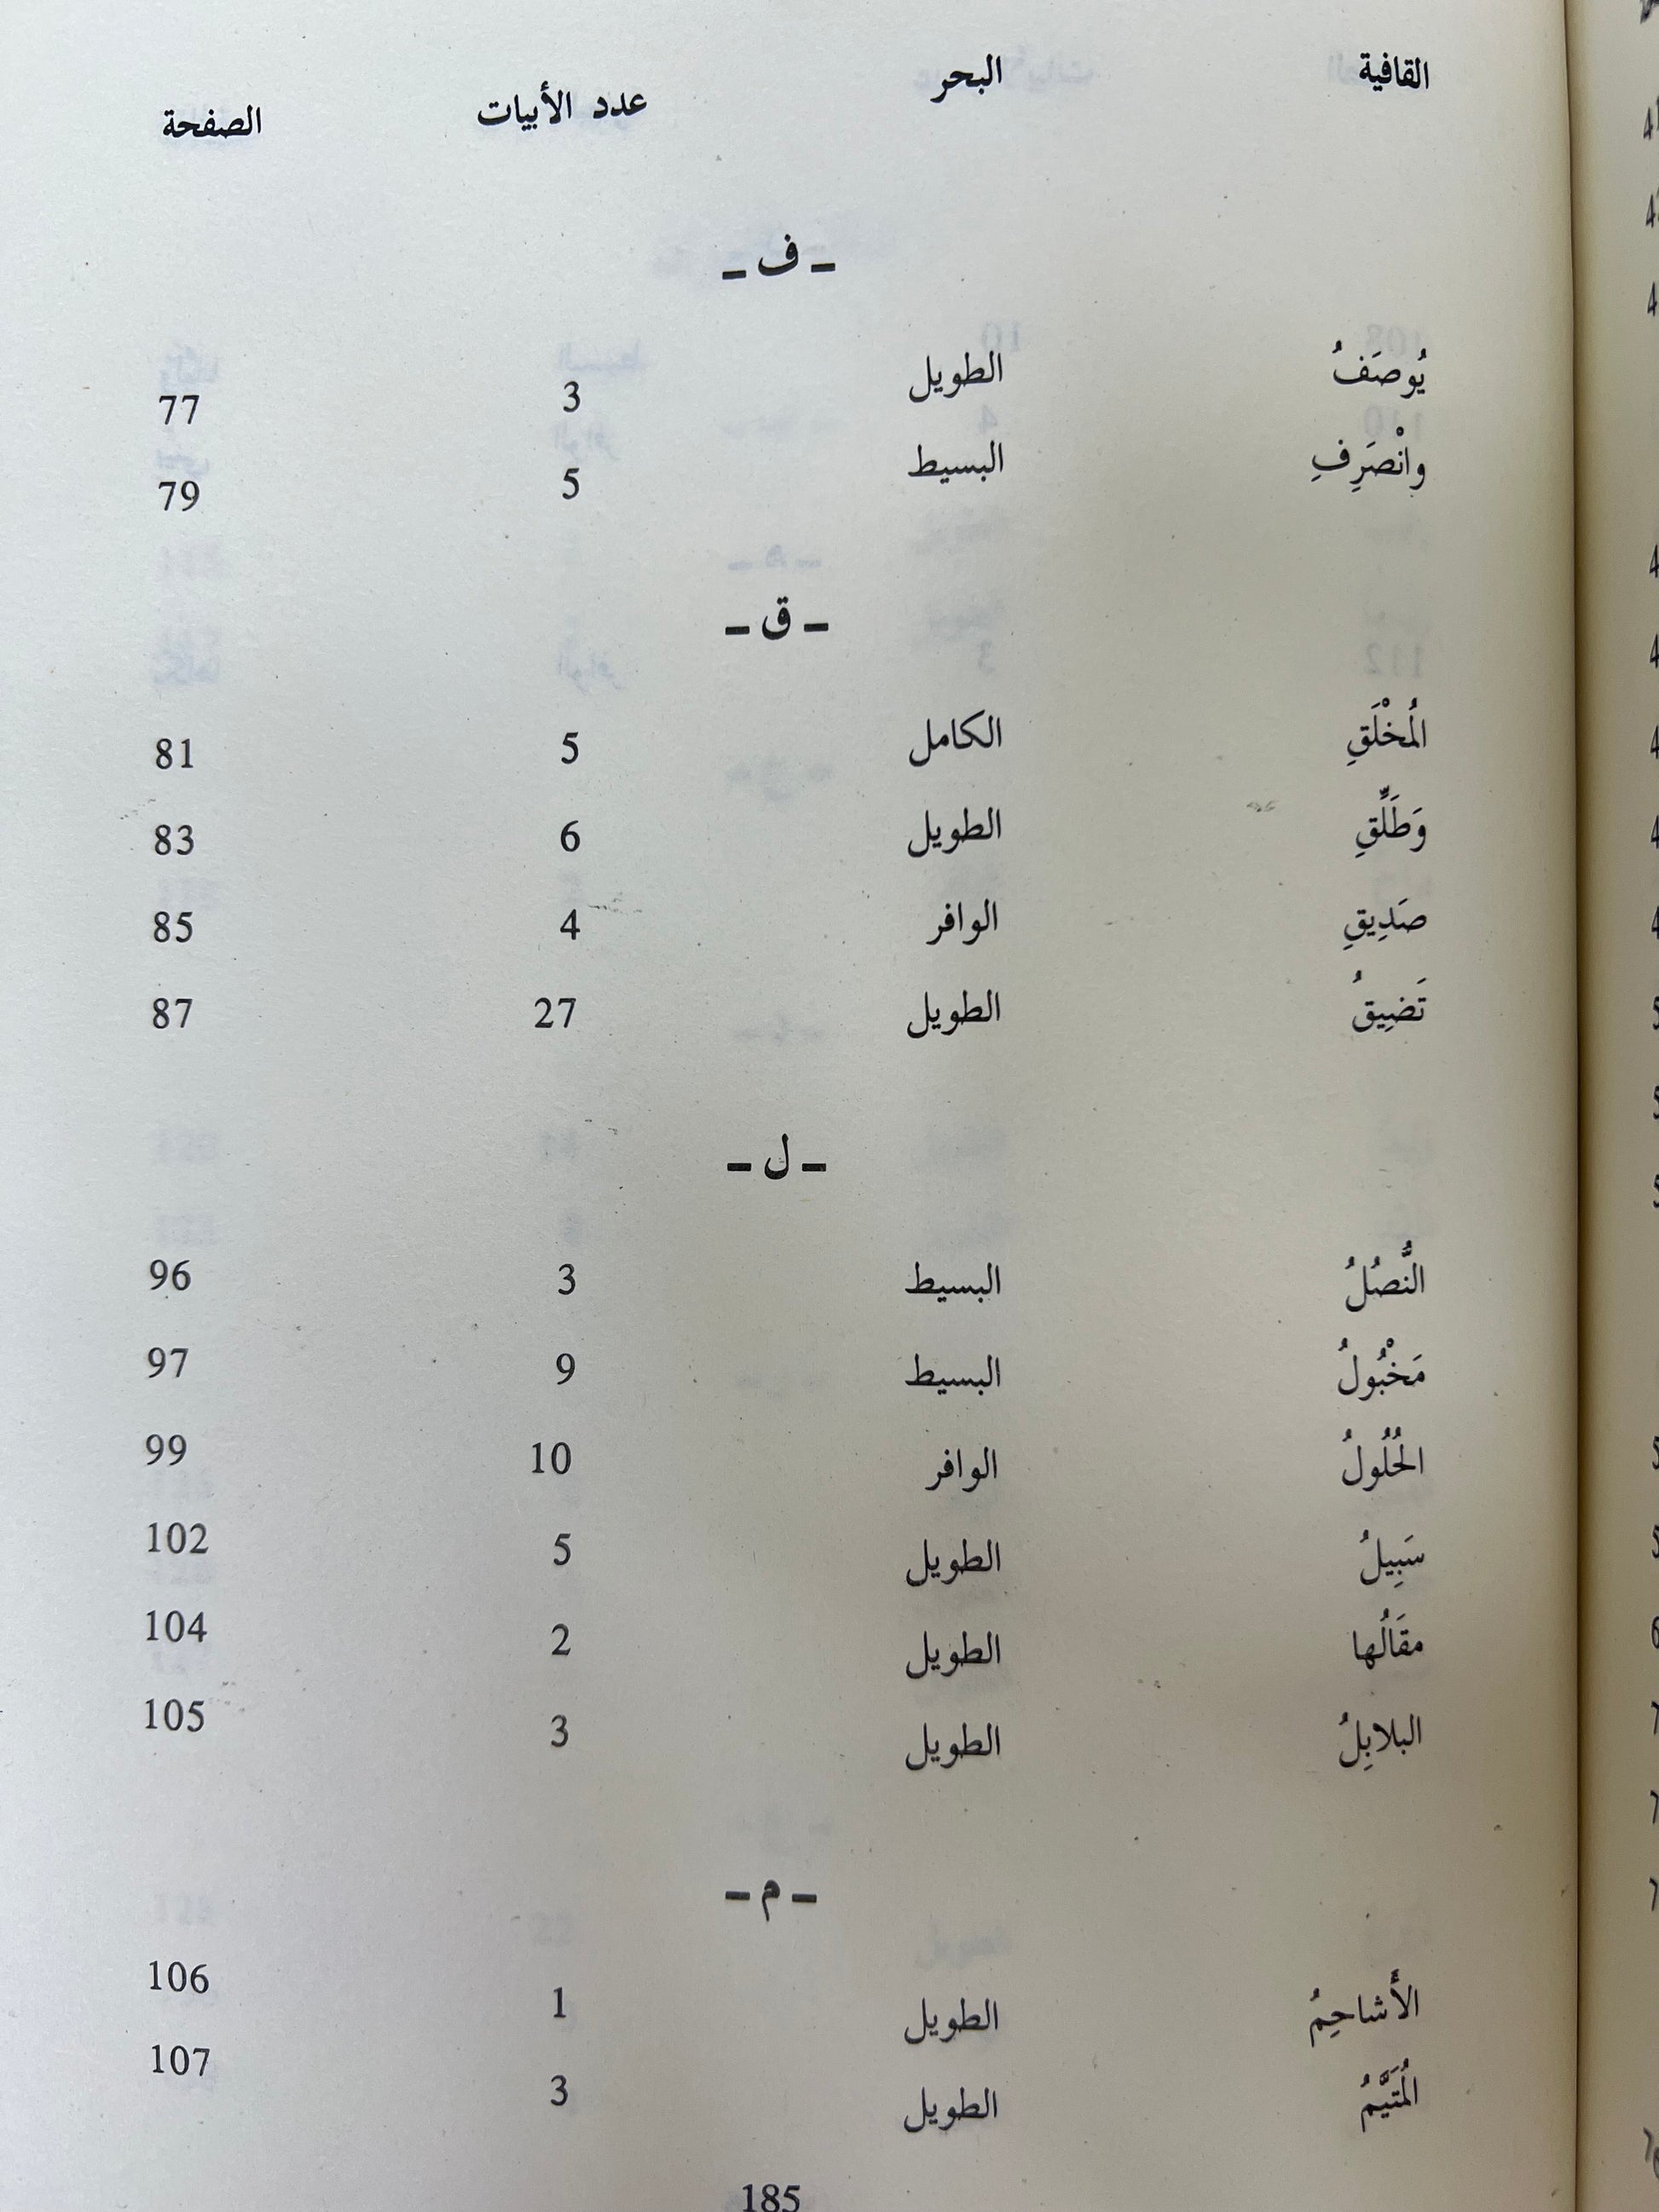 القافية البحر عدد الأبيات الصفحة
ـ ف ـ
يُوصَفُ الطويل 3 77
وانْصَرِفِ البسيط 5 79
ـ ق ـ
الُمخْلَقِ الكامل 5 81
وَطَلِّقِ الطويل 6 83
صَدِيقِ الوافر 4 85
تَضِيقُ الطويل 27 87
ـ ل ـ
النُّصُلُ البسيط 3 96
مَخْبُولُ البسيط 9 97
الحُلُولُ الوافر 10 99
سَبِيلُ الطويل 5 102
مقَالُها الطويل 2 104
البلابِلُ الطويل 3 105
ـ م ـ
الأَشاحِمُ الطويل 1 106
الُمتَيَّمُ الطويل 3 107
185